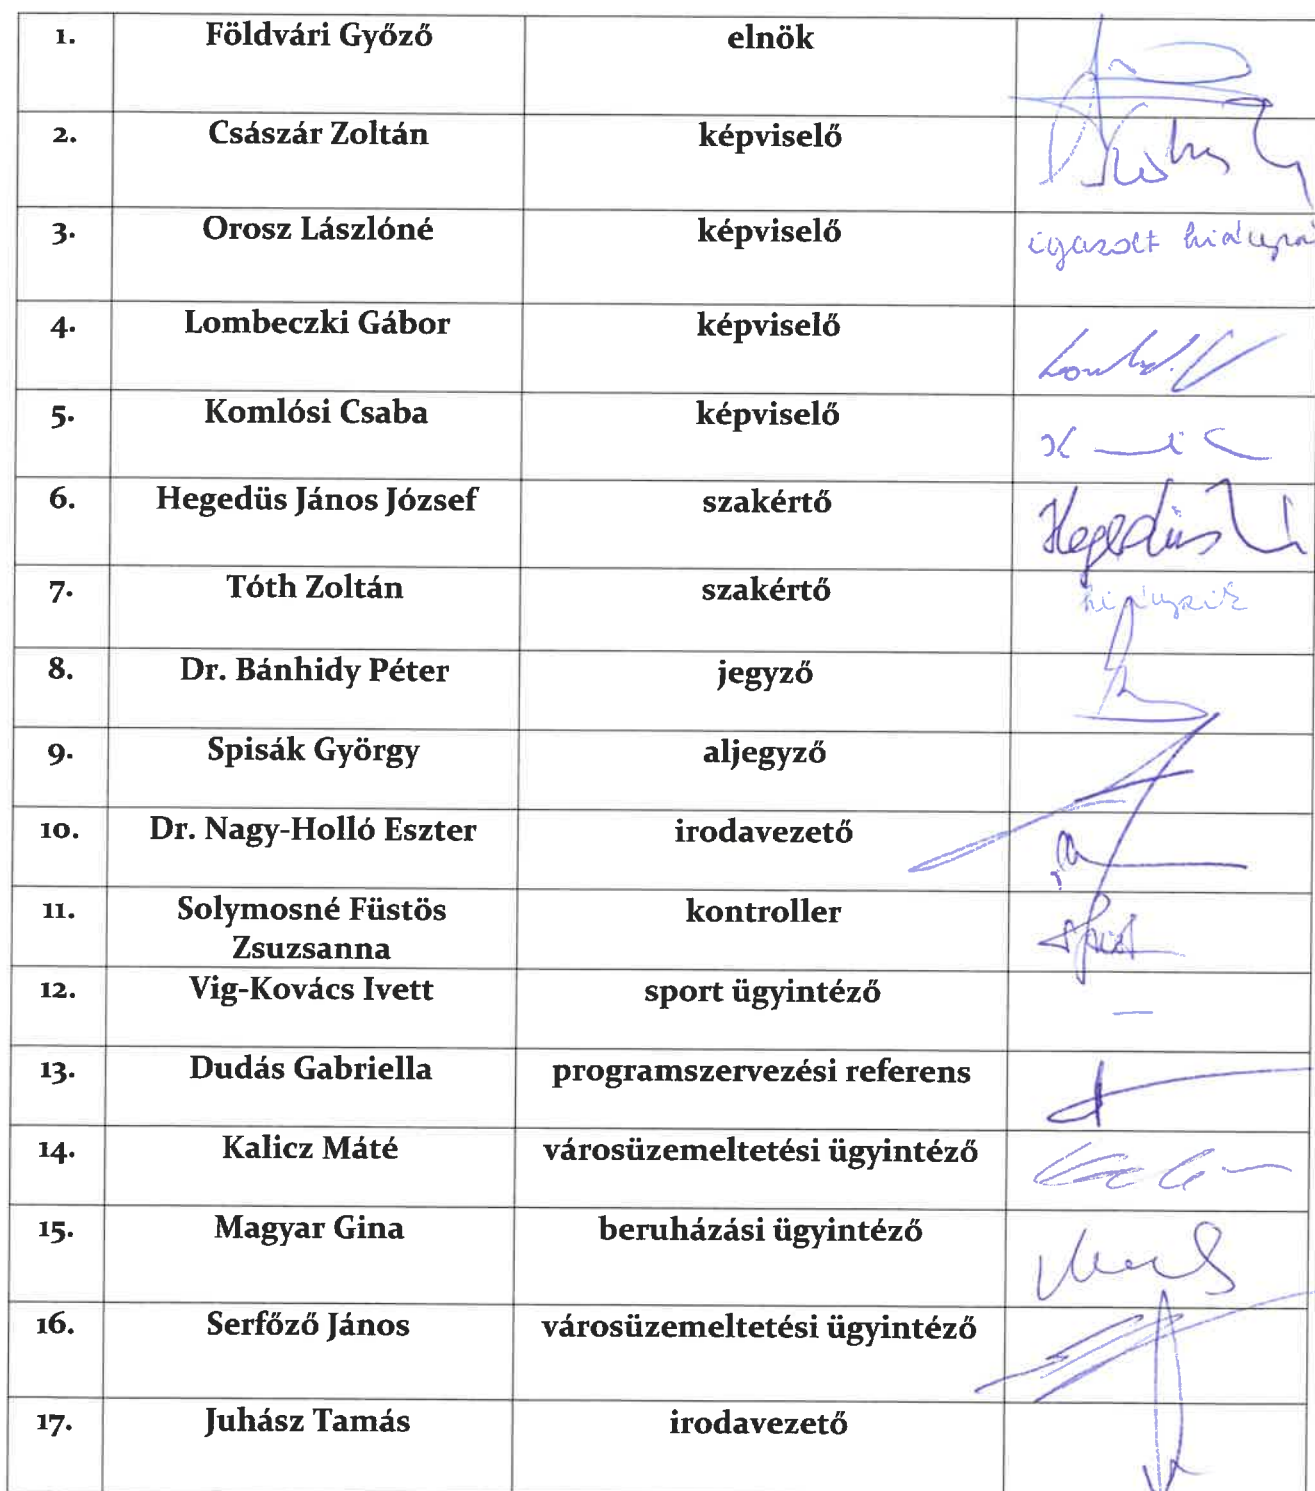 1. Földvári Győző elnök
2. Császár Zoltán képviselő
3. Orosz Lászlóné képviselő igazolt
4. Lombeczki Gábor képviselő
5. Komlósi Csaba képviselő
6. Hegedüs János József szakértő Hegedüs
7. Tóth Zoltán szakértő hiányzik
8. Dr. Bánhidy Péter jegyző
9. Spisák György aljegyző
10. Dr. Nagy-Holló Eszter irodavezető
11. Solymosné Füstös kontroller
Zsuzsanna
12. Vig-Kovács Ivett sport ügyintéző —
13. Dudás Gabriella programszervezési referens
14. Kalicz Máté városüzemeltetési ügyintéző
15. Magyar Gina beruházási ügyintéző
16. Serfőző János városüzemeltetési ügyintéző
17. Juhász Tamás irodavezető